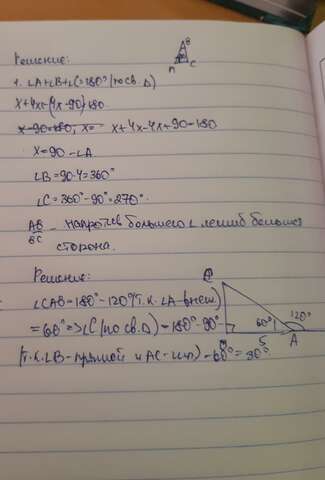 B
A C
Решение:
1. ∠A+∠B+∠C=180° (по св. Δ)
x+4x+(4x-90)=180
x-90=180; x= x+4x-4x+90=180
x=90-∠A
∠B=90·4=360°
∠C=360°-90°=270°.
AB
BC - напротив большего ∠ лежит большая
сторона.
Решение:
∠CAB=180°-120°(т.к. ∠A-внеш.)
=60°=>∠C(по св. Δ)-180°-90°
(т.к. ∠B-прямой и AC-гип)-60°=30°.
60° 120°
5 A